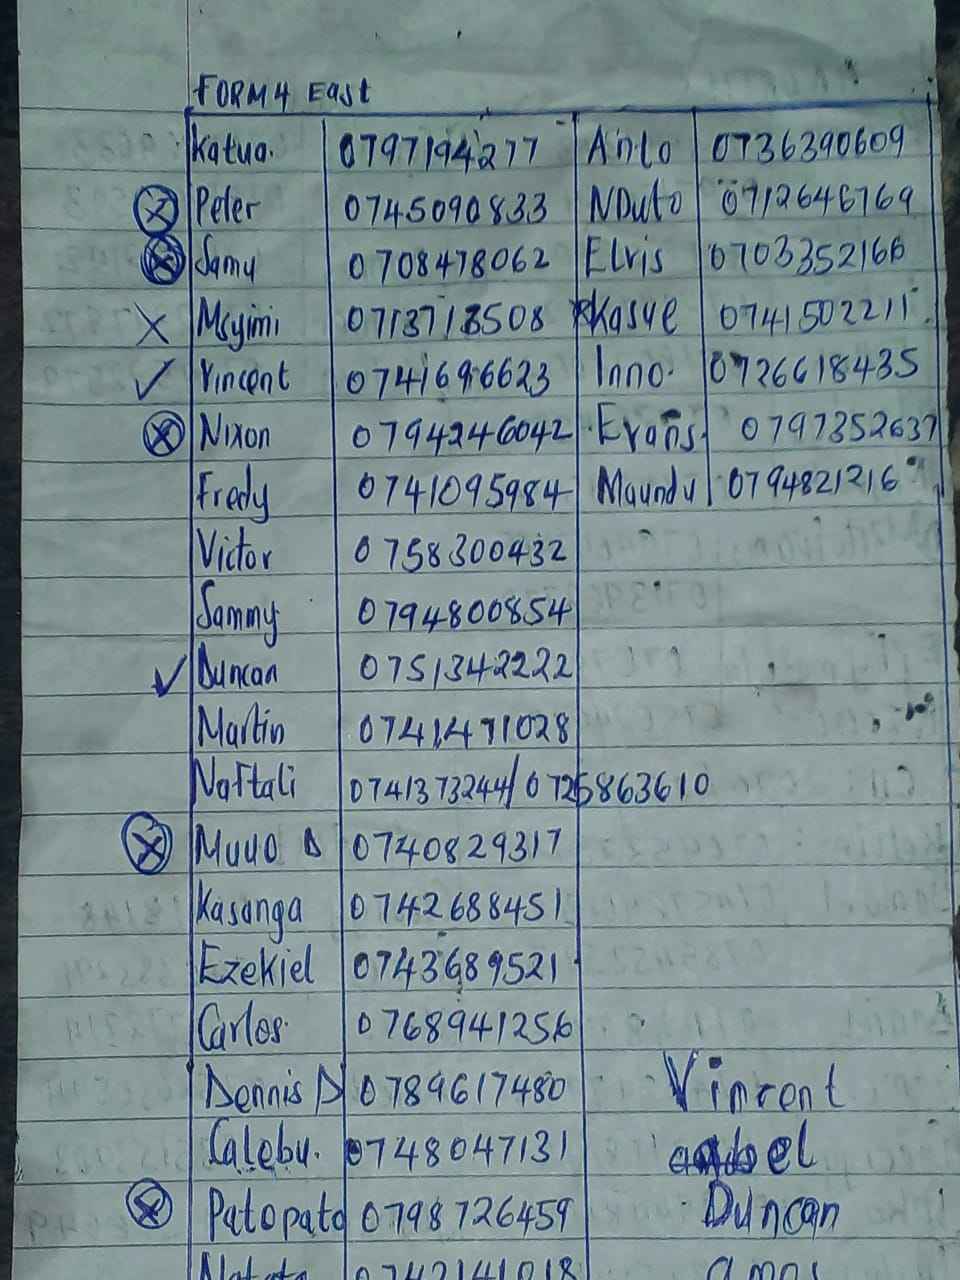 FORM 4 East
Katua. 0797194277 Anto 0736390609
Peter 0745090833 NDuto 0712646769
Samy 0708478062 Elvis 0703352166
Msyimi 0713713508 Kasye 0741502211.
Vincent 0741696623 Inno. 0726618435
Nixon 0794246042 Evans. 0797352637
Fredy 0741095984 Maundu 0794821216
Victor 0758300432
Sammy 0794800854
Duncan 0751342222
Martin 0741471028
Naftali 0741373244/0725863610
Muuo D 0740829317
Kasanga 0742688451
Ezekiel 0743689521
Carlos. 0768941256
Dennis D 0789617480 Vincent
Calebu. 0748047131
Patopato 0798726459 Duncan
0742141018 amos